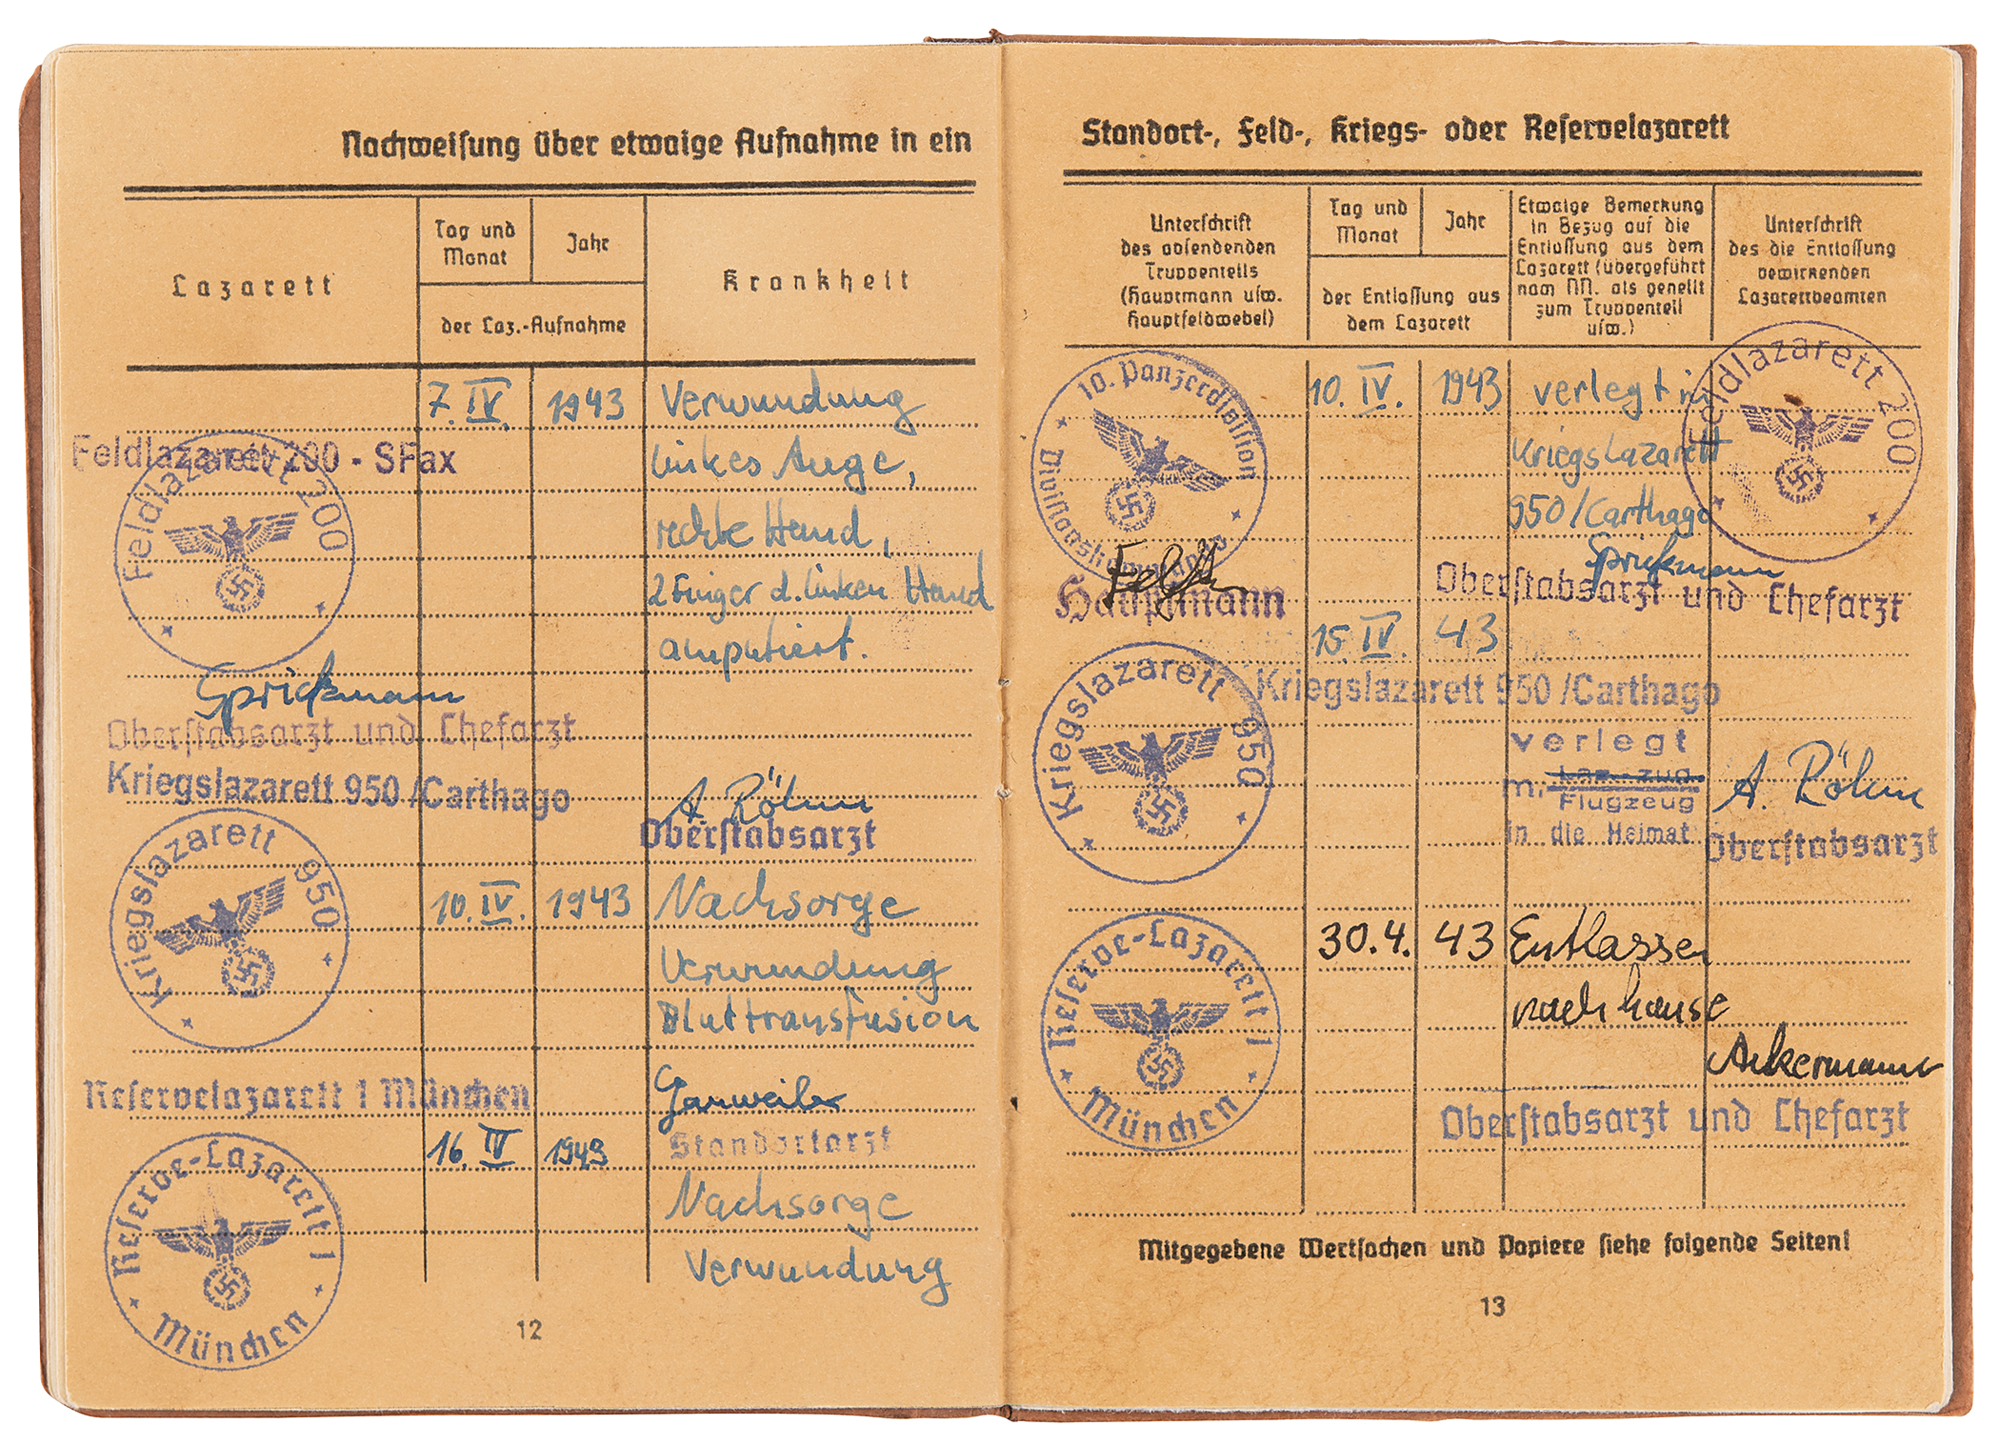 Nachweisung über etwaige Aufnahme in ein
Lazarett
Tag und
Monat
Jahr
der Laz.-Aufnahme
Krankheit
7. IV. 1943 Verwundung
Feldlazarett 200 - SFax
linkes Auge,
Feldlazarett 200
rechte Hand,
2 Finger d. linken Hand
amputiert.
Sprickmann
Oberstabsarzt und Chefarzt
Kriegslazarett 950 /Carthago
A Röhm
Oberstabsarzt
Kriegslazarett 950
10. IV. 1943 Nachsorge
Verwundung
Bluttransfusion
Reservelazarett 1 München
Garweiler
Standortarzt
16. IV 1943
Reserve-Lazarett 1
München
Nachsorge
Verwundung
12
Standort-, Feld-, Kriegs- oder Reservelazarett
Unterschrift
des absendenden
Truppenteils
(Hauptmann usw.
Hauptfeldwebel)
Tag und
Monat
Jahr
der Entlassung aus
dem Lazarett
Etwaige Bemerkung
in Bezug auf die
Entlassung aus dem
Lazarett (übergeführt
nach NN. als geheilt
zum Truppenteil
usw.)
Unterschrift
des die Entlassung
bewirkenden
Lazarettbeamten
10. Panzerdivision
10. IV. 1943 verlegt in
Feldlazarett 200
Kriegslazarett
950/Carthago
Sprickmann
Hauptmann
Oberstabsarzt und Chefarzt
15. IV. 43
Kriegslazarett 950
Kriegslazarett 950 /Carthago
verlegt
m. Laz.-zug
Flugzeug
in die Heimat
A. Röhm
Oberstabsarzt
30.4. 43 Entlassen
nach hause
Reserve-Lazarett 1
München
Ankermann
Oberstabsarzt und Chefarzt
Mitgegebene Wertsachen und Papiere siehe folgende Seiten!
13